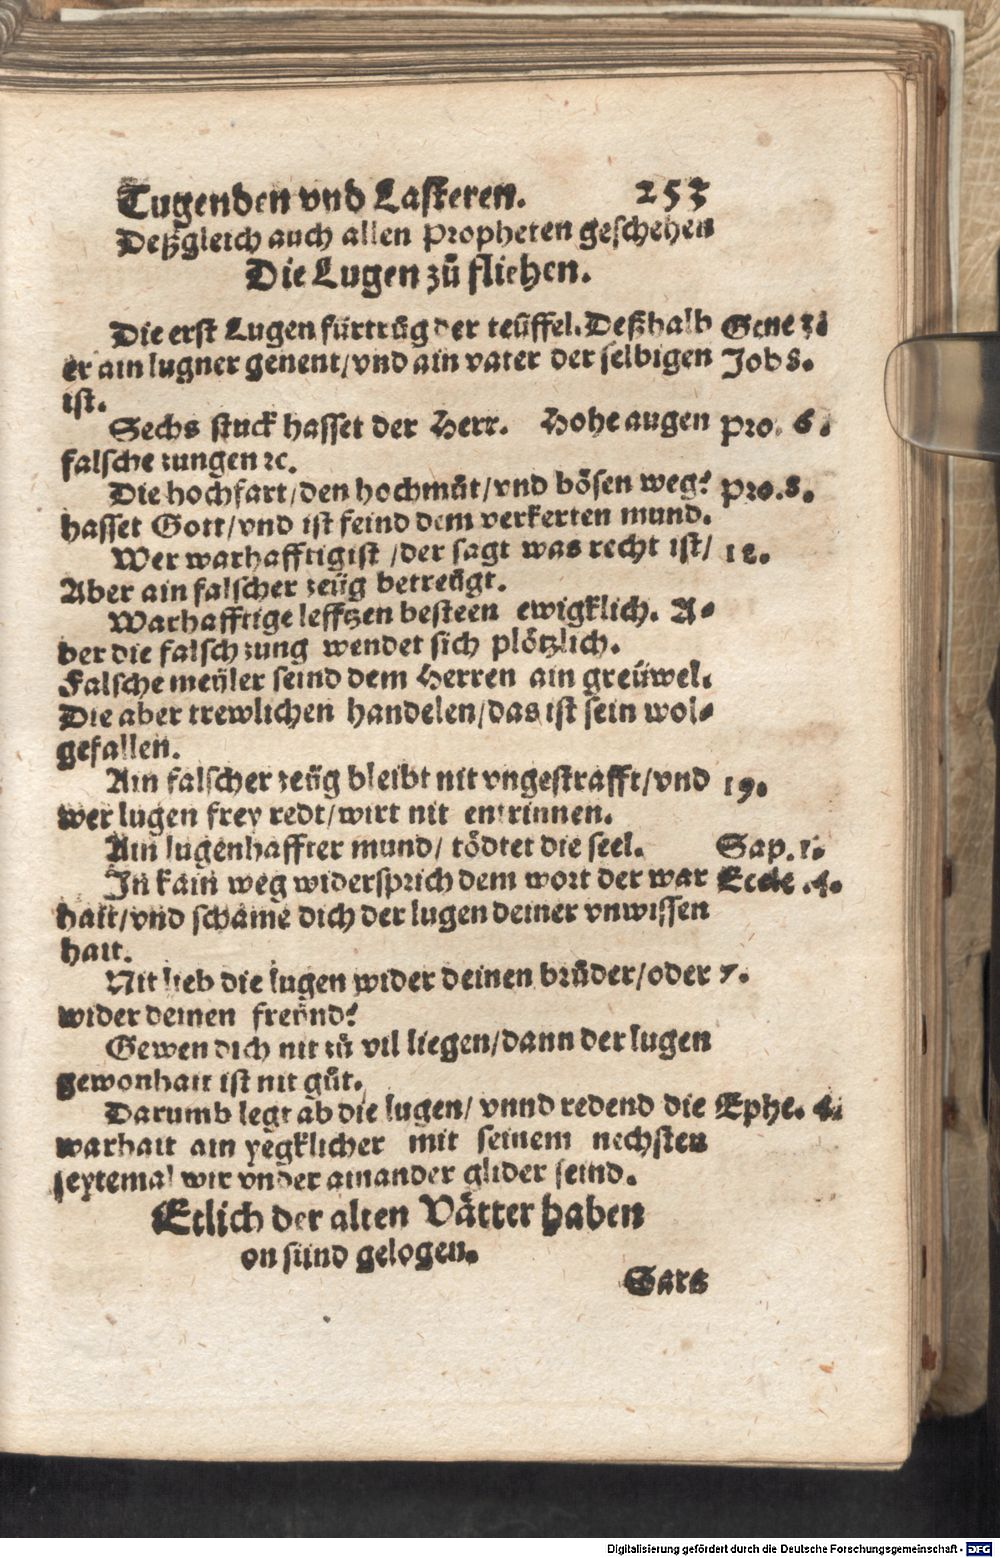 Tugenden vnd Lasteren. 253
Deßgleich auch allen Propheten geschehen
Die Lugen zů fliehen.
Die erst Lugen fürtrůg der teüffel. Deßhalb Gene 3.
er ain lugner genent/vnd ain vater der selbigen Joh 8.
ist.
Sechs stuck hasset der Herr. Hohe augen Pro. 6.
falsche zungen ꝛc.
Die hochfart/den hochmůt/vnd bösen weg: Pro. 8.
hasset Gott/vnd ist feind dem verkerten mund.
Wer warhafftig ist /der sagt was recht ist/ 12.
Aber ain falscher zeüg betreügt.
Warhafftige lefftzen besteen ewigklich. A-
ber die falsch zung wendet sich plötzlich.
Falsche meüler seind dem Herren ain greüwel.
Die aber trewlichen handelen/das ist sein wol-
gefallen.
Ain falscher zeüg bleibt nit vngestrafft/vnd 19.
wer lugen frey redt/wirt nit entrinnen.
Ain lugenhaffter mund/ tödtet die seel. Sap. 1.
In kain weg widersprich dem wort der war Eccle .4.
hait/vnd schäme dich der lugen deiner vnwissen
hait.
Nit lieb die lugen wider deinen brůder/oder 7.
wider deinen freünd:
Gewen dich nit zů vil liegen/dann der lugen
gewonhait ist nit gůt.
Darumb legt ab die lugen/ vnnd redend die Ephe. 4.
warhait ain yegklicher mit seinem nechsten
seytemal wir vnder ainander glider seind.
Etlich der alten Vätter haben
on sünd gelogen.
Sara
Digitalisierung gefördert durch die Deutsche Forschungsgemeinschaft - DFG